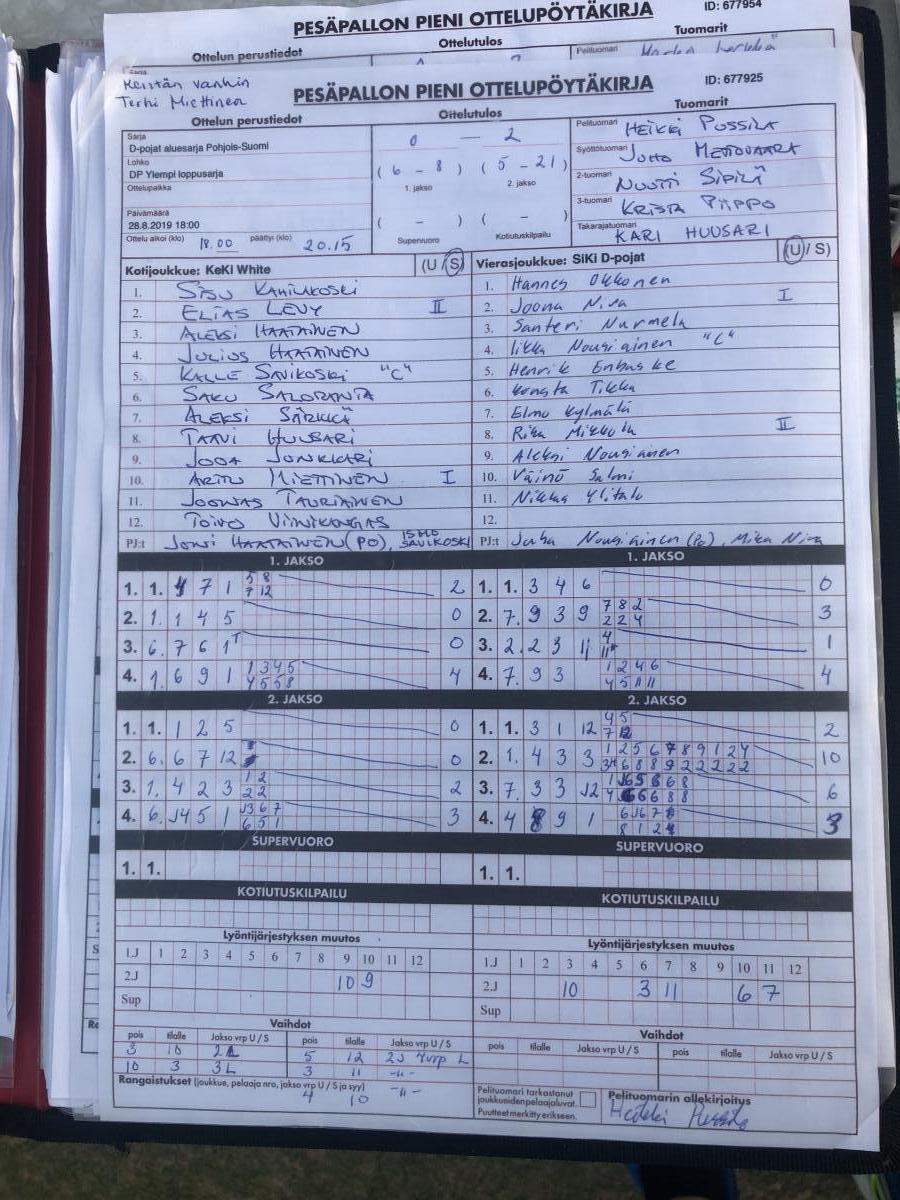 PESÄPALLON PIENI OTTELUPÖYTÄKIRJA
ID: 677954
Ottelun perustiedot
Ottelutulos
Tuomarit
Pelituomari
Sarja
Terhi Miettinen
PESÄPALLON PIENI OTTELUPÖYTÄKIRJA
ID: 677925
Ottelun perustiedot
Ottelutulos
Tuomarit
Sarja
D-pojat aluesarja Pohjois-Suomi
Lohko
DP Ylempi loppusarja
Ottelupaikka
Päivämäärä
28.8.2019 18:00
Ottelu alkoi (klo) 18.00 päättyi (klo) 20.15
0 — 2
(6 - 8) (5 - 21)
1. jakso 2. jakso
( - ) ( - )
Supervuoro Kotiutuskilpailu
Pelituomari HEIKKI PUSSILA
Syöttötuomari
2-tuomari NUUTTI SIPILÄ
3-tuomari KRISTA PIIPPO
Takarajatuomari KARI HUUSARI
Kotijoukkue: KeKi White (U / S)
1.
2. ELIAS LEVY II
3. ALEKSI HAATAINEN
4. JULIUS HAATAINEN
5. KALLE SAVIKOSKI "C"
6. SAKU SALORANTA
7. ALEKSI SÄRKKÄ
8. TAAVI HUUSARI
9. JOONKKARI
10. MIETTINEN I
11. JOONAS TAURIAINEN
12. TOIVO VIINIKANGAS
PJ:t JONI HAATAINEN (PO), ISMO SAVIKOSKI
Vierasjoukkue: SiKi D-pojat (U / S)
1. Hannes Okkonen
2. Joona Niva I
3. Santeri Nurmela
4. Iikka Nousiainen "C"
5. Henrik Enbuske
6. Konsta Tikka
7. Elmo Kylmälä
8. Mikkola II
9. Aleksi Nousiainen
10. Väinö Salmi
11. Niklas Ylitalo
12.
PJ:t Juha Nousiainen (Po), Mika Niva
1. JAKSO
1. 1. 7 1 5 8 2
7 12
2. 1. 1 4 5 0
3. 6. 7 6 1 0
4. 1. 6 9 1 1 3 4 5 4
4 5 5 8
1. JAKSO
1. 1. 3 4 6 0
2. 7. 9 3 9 7 8 2 3
2 2 4
3. 2. 2 3 11 4 1
4. 7. 9 3 1 2 4 6 4
4 5 11 11
2. JAKSO
1. 1. 1 2 5 0
2. 6. 6 7 12 0
3. 1. 4 2 3 1 2 2
2 2
4. 6. 5 1 3
6 5 1
2. JAKSO
1. 1. 3 1 12 4 5 2
7 12
2. 1. 4 3 3 1 2 5 6 7 8 9 1 2 4 10
3. 7. 3 3 6
4. 4 9 1 3
SUPERVUORO
1. 1.
SUPERVUORO
1. 1.
KOTIUTUSKILPAILU
KOTIUTUSKILPAILU
Lyöntijärjestyksen muutos
1.J 1 2 3 4 5 6 7 8 9 10 11 12
2.J 10 9
Sup
Lyöntijärjestyksen muutos
1.J 1 2 3 4 5 6 7 8 9 10 11 12
2.J 10 3 11 6 7
Sup
Vaihdot
pois tilalle Jakso vrp U / S pois tilalle Jakso vrp U / S
3 10 5 12 2J 4vrp L
10 3 3L 3 11 -11-
Rangaistukset (joukkue, pelaaja nro, jakso vrp U / S ja syy)
4 10 -11-
Vaihdot
pois tilalle Jakso vrp U / S pois tilalle Jakso vrp U / S
Pelituomari tarkastanut
joukkueidenpelaajaluvat.
Puutteet merkitty erikseen.
Pelituomarin allekirjoitys
Heikki Pussila